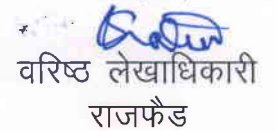 वरिष्ठ लेखाधिकारी
राजफैड